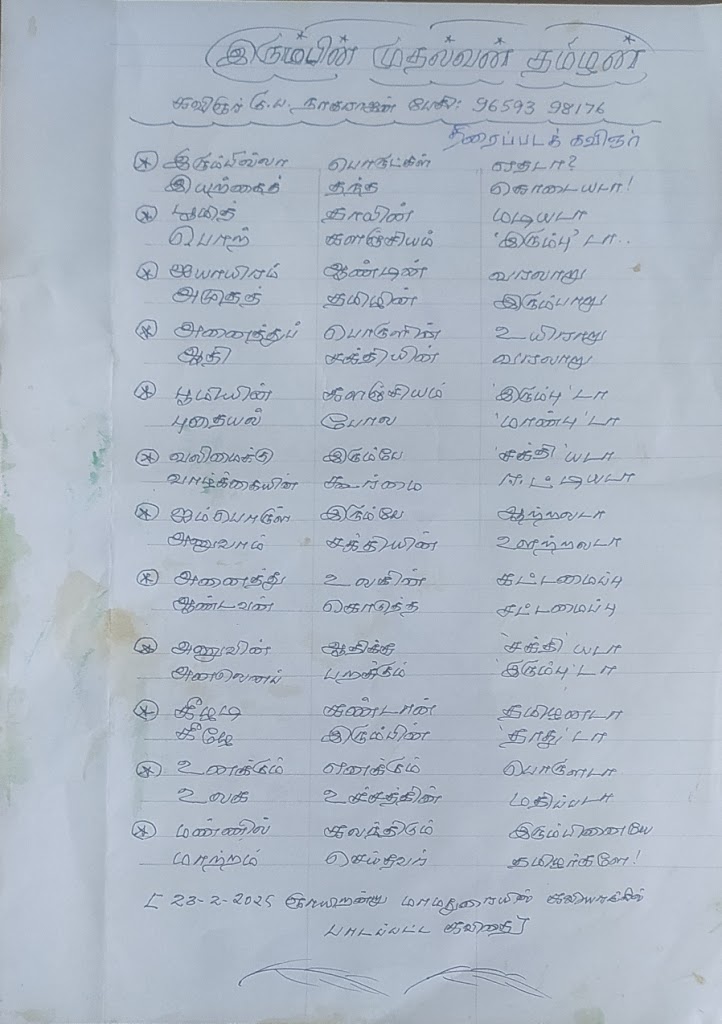 இரும்பின் முதல்வன் தமிழன்
கவிஞர் பேசி: 96593 98176
திரைப்படக் கவிஞர்
இரும்பில்லா பொருட்கள் எதடா?
இயற்கைத் தந்த கொடையடா!
பூமித் தாயின் மடியடா
பொற் களஞ்சியம் 'இரும்பு' டா..
ஐயாயிரம் ஆண்டின் வரலாறு
அடுத்தத் தமிழின் இரும்பாறு
அனைத்துப் பொருளின் உயிராறு
ஆதி சக்தியின் வரலாறு
பூமியின் களஞ்சியம் 'இரும்பு' டா
புதையல் போல 'மாண்பு' டா
வலிமைக்கு இரும்பே 'சக்தி' யடா
வாழ்க்கையின் கூர்மை ஈட்டியடா
ஐம்பொருள் இரும்பே ஆற்றலடா
அணுவாம் சக்தியின் ஊற்றலடா
அனைத்து உலகின் கட்டமைப்பு
ஆண்டவன் கொடுத்த சட்டமைப்பு
அணுவின் ஆதிக்க 'சக்தி' யடா
அனலெனப் பறக்கும் 'இரும்பு' டா
கீழடி கண்டான் தமிழனடா
கீழே இரும்பின் 'தாது' டா
உனக்கும் எனக்கும் பொருளடா
உலக உச்சத்தின் மதிப்படா
மண்ணில் கலந்திடும் இரும்பினையே
மாற்றம் செய்தவர் தமிழர்களே!
[ 23-2-2025 ஞாயிறன்று மாமதுரையில்
பாடப்பட்ட கவிதை]